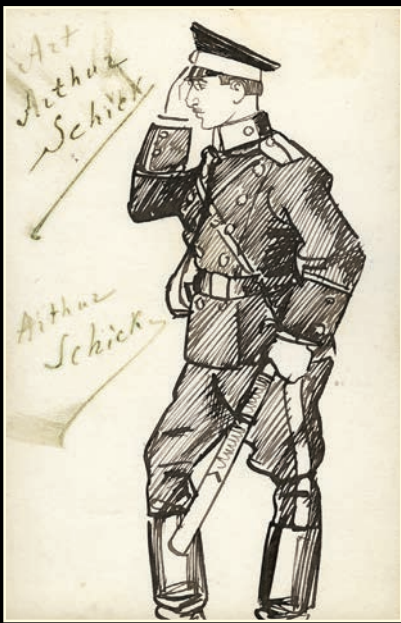 Art
Arthur
Schick
Arthur
Schick